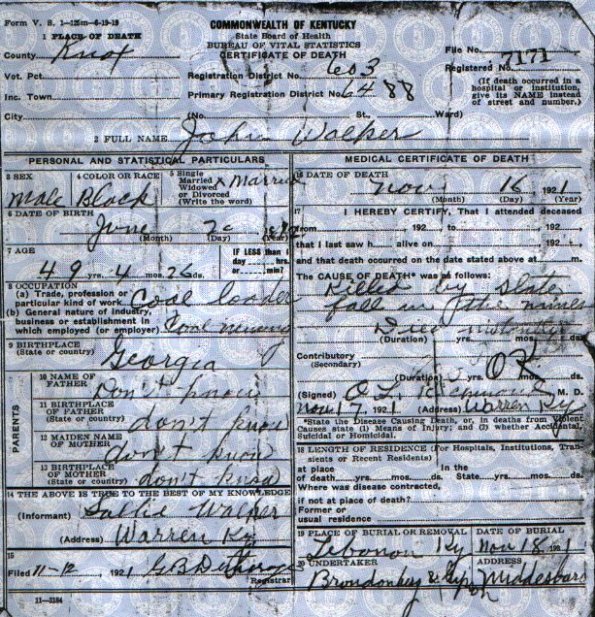 Form V. S. 1-125m-6-19-19
COMMONWEALTH OF KENTUCKY
State Board of Health
BUREAU OF VITAL STATISTICS
CERTIFICATE OF DEATH
1 PLACE OF DEATH
County Knox
Vot. Pct.
Inc. Town
City
Registration District No. 603
Primary Registration District No. 6488
(No. St., Ward)
File No.
Registered No. 7171
(If death occurred in a
hospital or institution,
give its NAME instead
of street and number.)
2 FULL NAME John Walker
PERSONAL AND STATISTICAL PARTICULARS
3 SEX
Male
4 COLOR OR RACE
Black
5 Single
Married
Widowed
or Divorced
(Write the word)
Married
6 DATE OF BIRTH
June
(Month) (Day) (Year)
7 AGE
49 yrs. 4 mos. 26 ds.
IF LESS than 1
day hrs.
or min?
8 OCCUPATION
(a) Trade, profession or
particular kind of work Coal loader
(b) General nature of industry,
business or establishment in
which employed (or employer) Coal mining
9 BIRTHPLACE
(State or country) Georgia
PARENTS
10 NAME OF
FATHER Don't know
11 BIRTHPLACE
OF FATHER
(State or country) don't know
12 MAIDEN NAME
OF MOTHER don't know
13 BIRTHPLACE
OF MOTHER
(State or country) don't know
14 THE ABOVE IS TRUE TO THE BEST OF MY KNOWLEDGE
(Informant) Sallie Walker
(Address) Warren Ky
15
Filed 11-12, 1921
Registrar
11-3184
MEDICAL CERTIFICATE OF DEATH
16 DATE OF DEATH
Nov 16, 1921
(Month) (Day) (Year)
17 I HEREBY CERTIFY, That I attended deceased
from 192 to 192
that I last saw h alive on 192
and that death occurred on the date stated above at m.
The CAUSE OF DEATH* was as follows:
Killed by slate
fall in the mines
Died instantly
(Duration) yrs. mos. ds.
Contributory
(Secondary)
OK
(Duration) yrs. mos. ds.
(Signed) O. L. M. D.
Nov 17, 1921 (Address) Warren Ky
*State the Disease Causing Death, or, in deaths from Violent
Causes state (1) Means of Injury; and (2) whether Accidental,
Suicidal or Homicidal.
18 LENGTH OF RESIDENCE (For Hospitals, Institutions, Tran-
sients or Recent Residents)
at place In the
of death yrs. mos. ds. State yrs. mos. ds.
Where was disease contracted,
If not at place of death?
Former or
usual residence
19 PLACE OF BURIAL OR REMOVAL
Lebanon Ky
DATE OF BURIAL
Nov 18, 1921
20 UNDERTAKER
ADDRESS